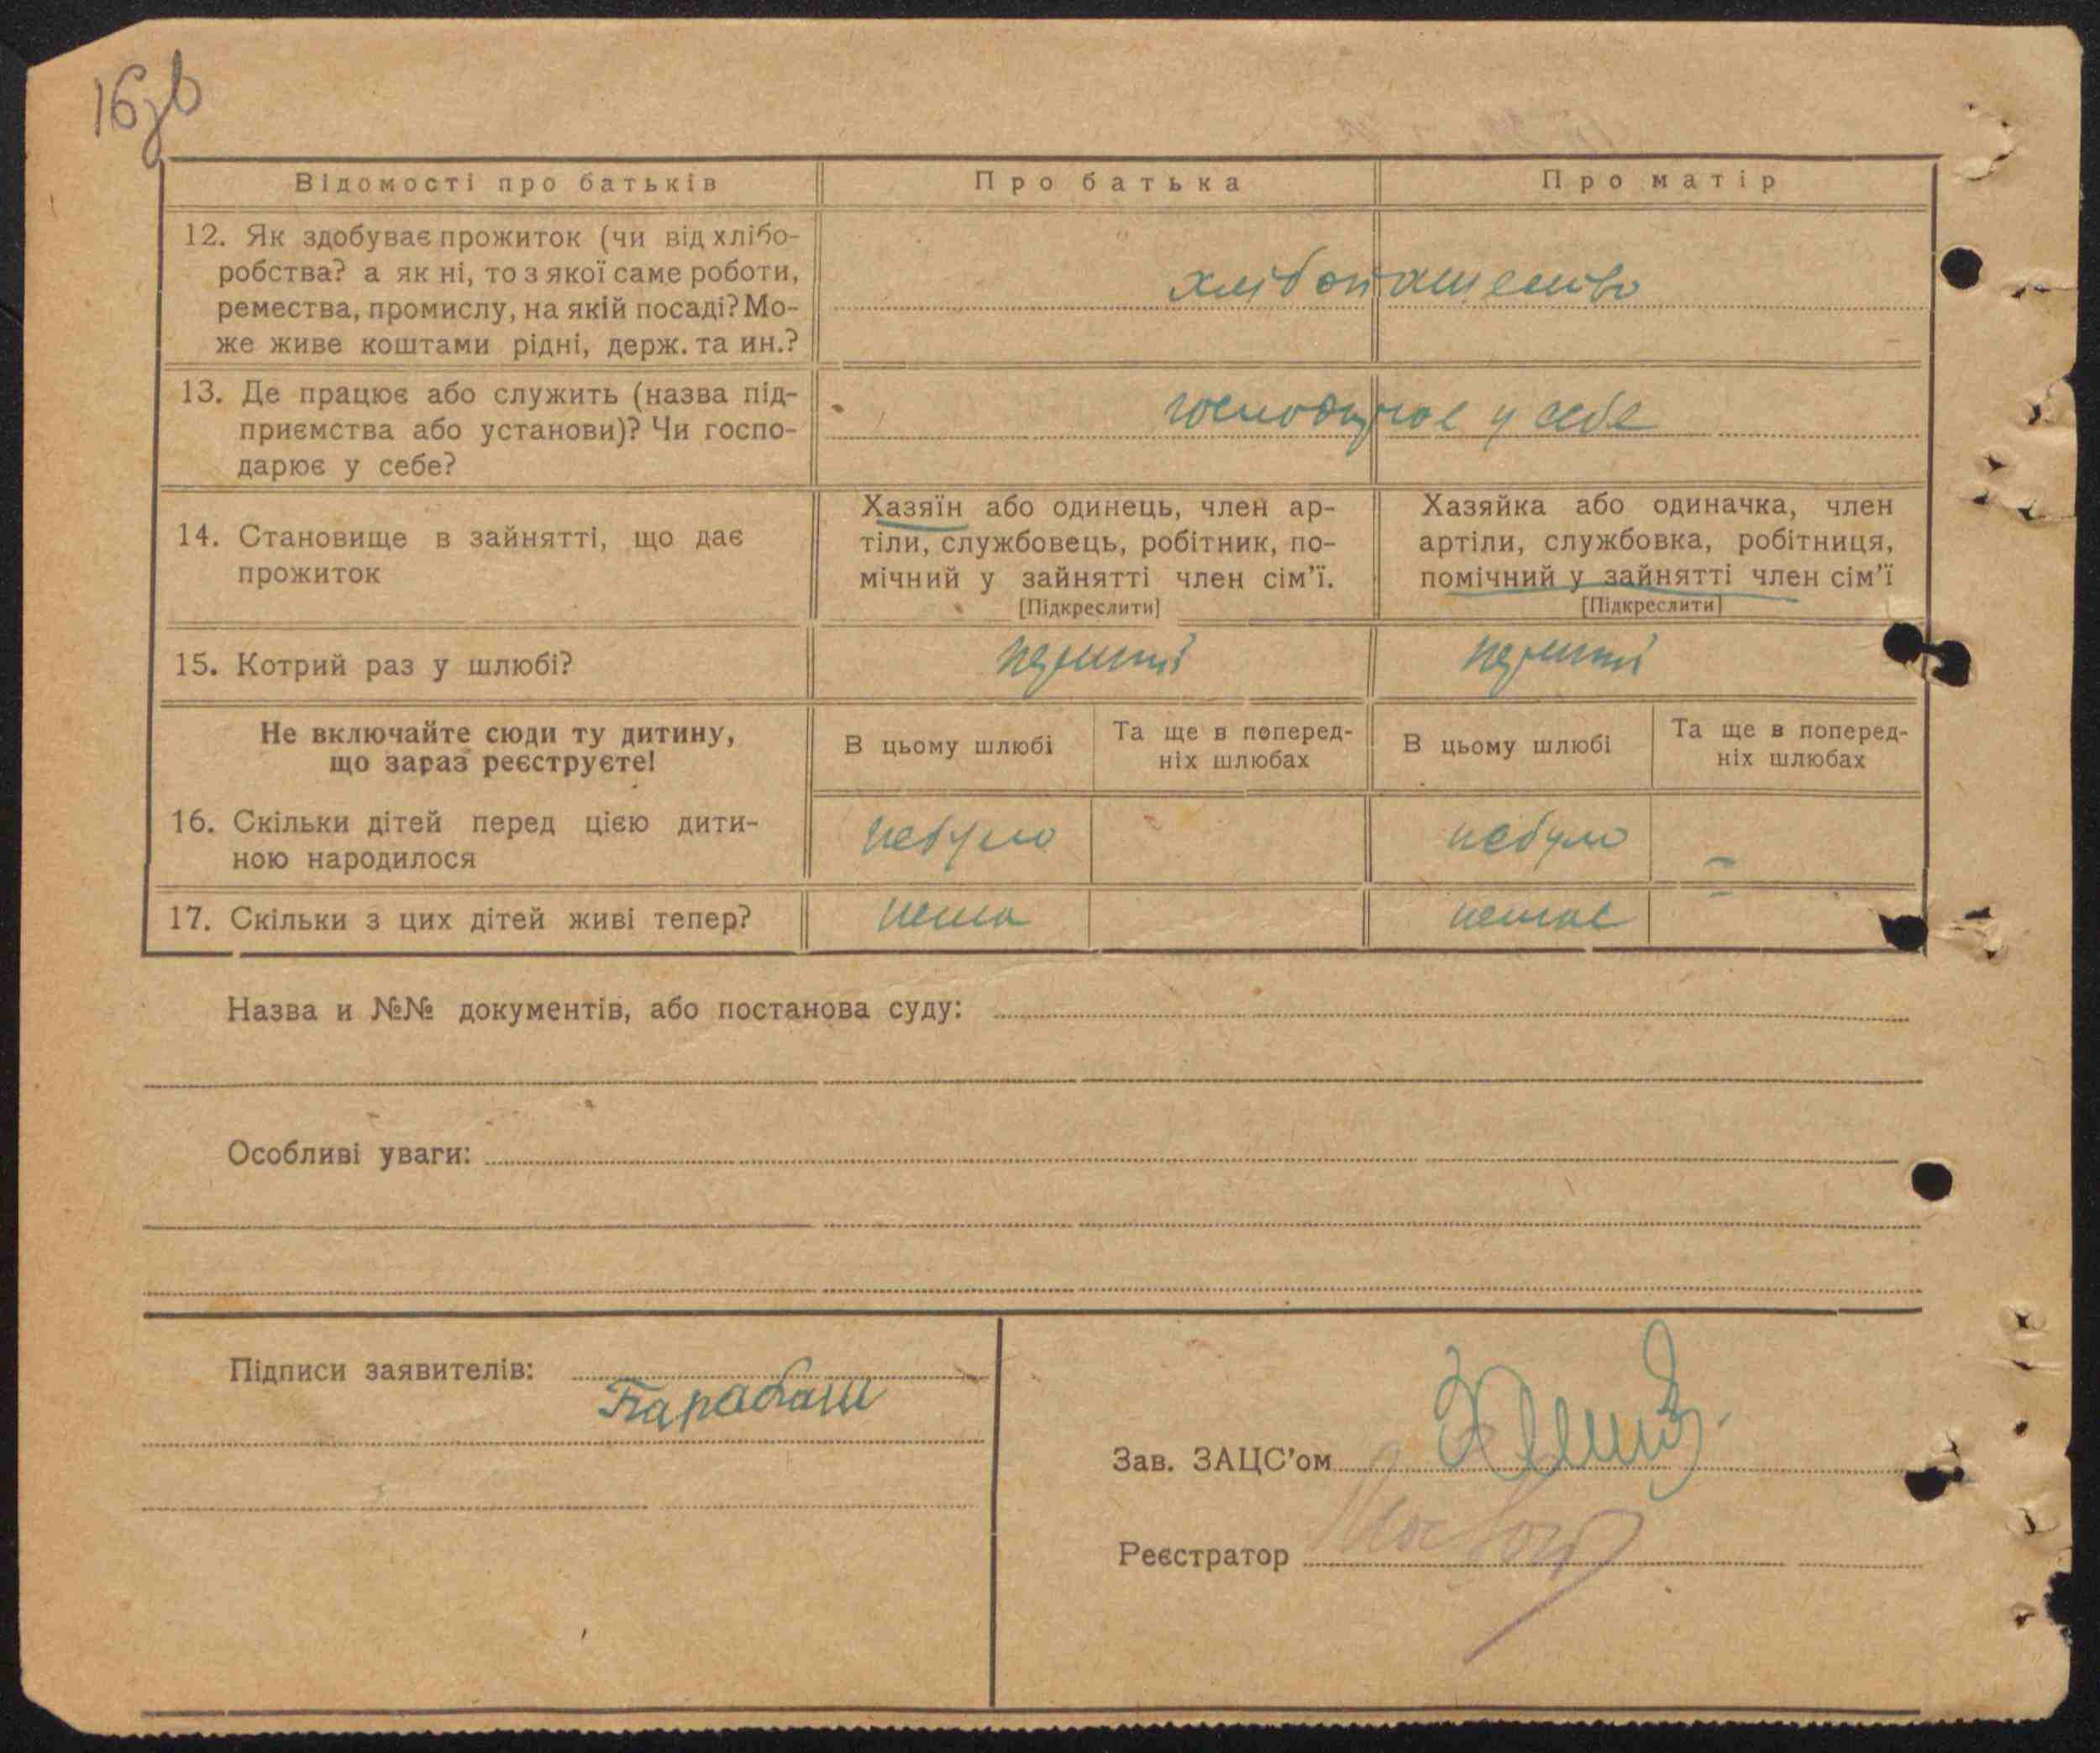 16зв
Відомості про батьків
Про батька
Про матір
12. Як здобуває прожиток (чи від хлібо-
робства? а як ні, то з якої саме роботи,
ремества, промислу, на якій посаді? Мо-
же живе коштами рідні, держ. та ин.?
хлібопашество
13. Де працює або служить (назва під-
приємства або установи)? Чи госпо-
дарює у себе?
господарює у себе
14. Становище в зайнятті, що дає
прожиток
Хазяїн або одинець, член ар-
тіли, службовець, робітник, по-
мічний у зайнятті член сім'ї.
[Підкреслити]
Хазяйка або одиначка, член
артіли, службовка, робітниця,
помічний у зайнятті член сім'ї
[Підкреслити]
15. Котрий раз у шлюбі?
перший
перший
Не включайте сюди ту дитину,
що зараз реєструєте!
В цьому шлюбі
Та ще в поперед-
ніх шлюбах
В цьому шлюбі
Та ще в поперед-
ніх шлюбах
16. Скільки дітей перед цією дити-
ною народилося
небуло
небуло
17. Скільки з цих дітей живі тепер?
нема
немає
Назва и №№ документів, або постанова суду:
Особливі уваги:
Підписи заявителів:
Барабаш
Зав. ЗАЦС'ом
Реєстратор